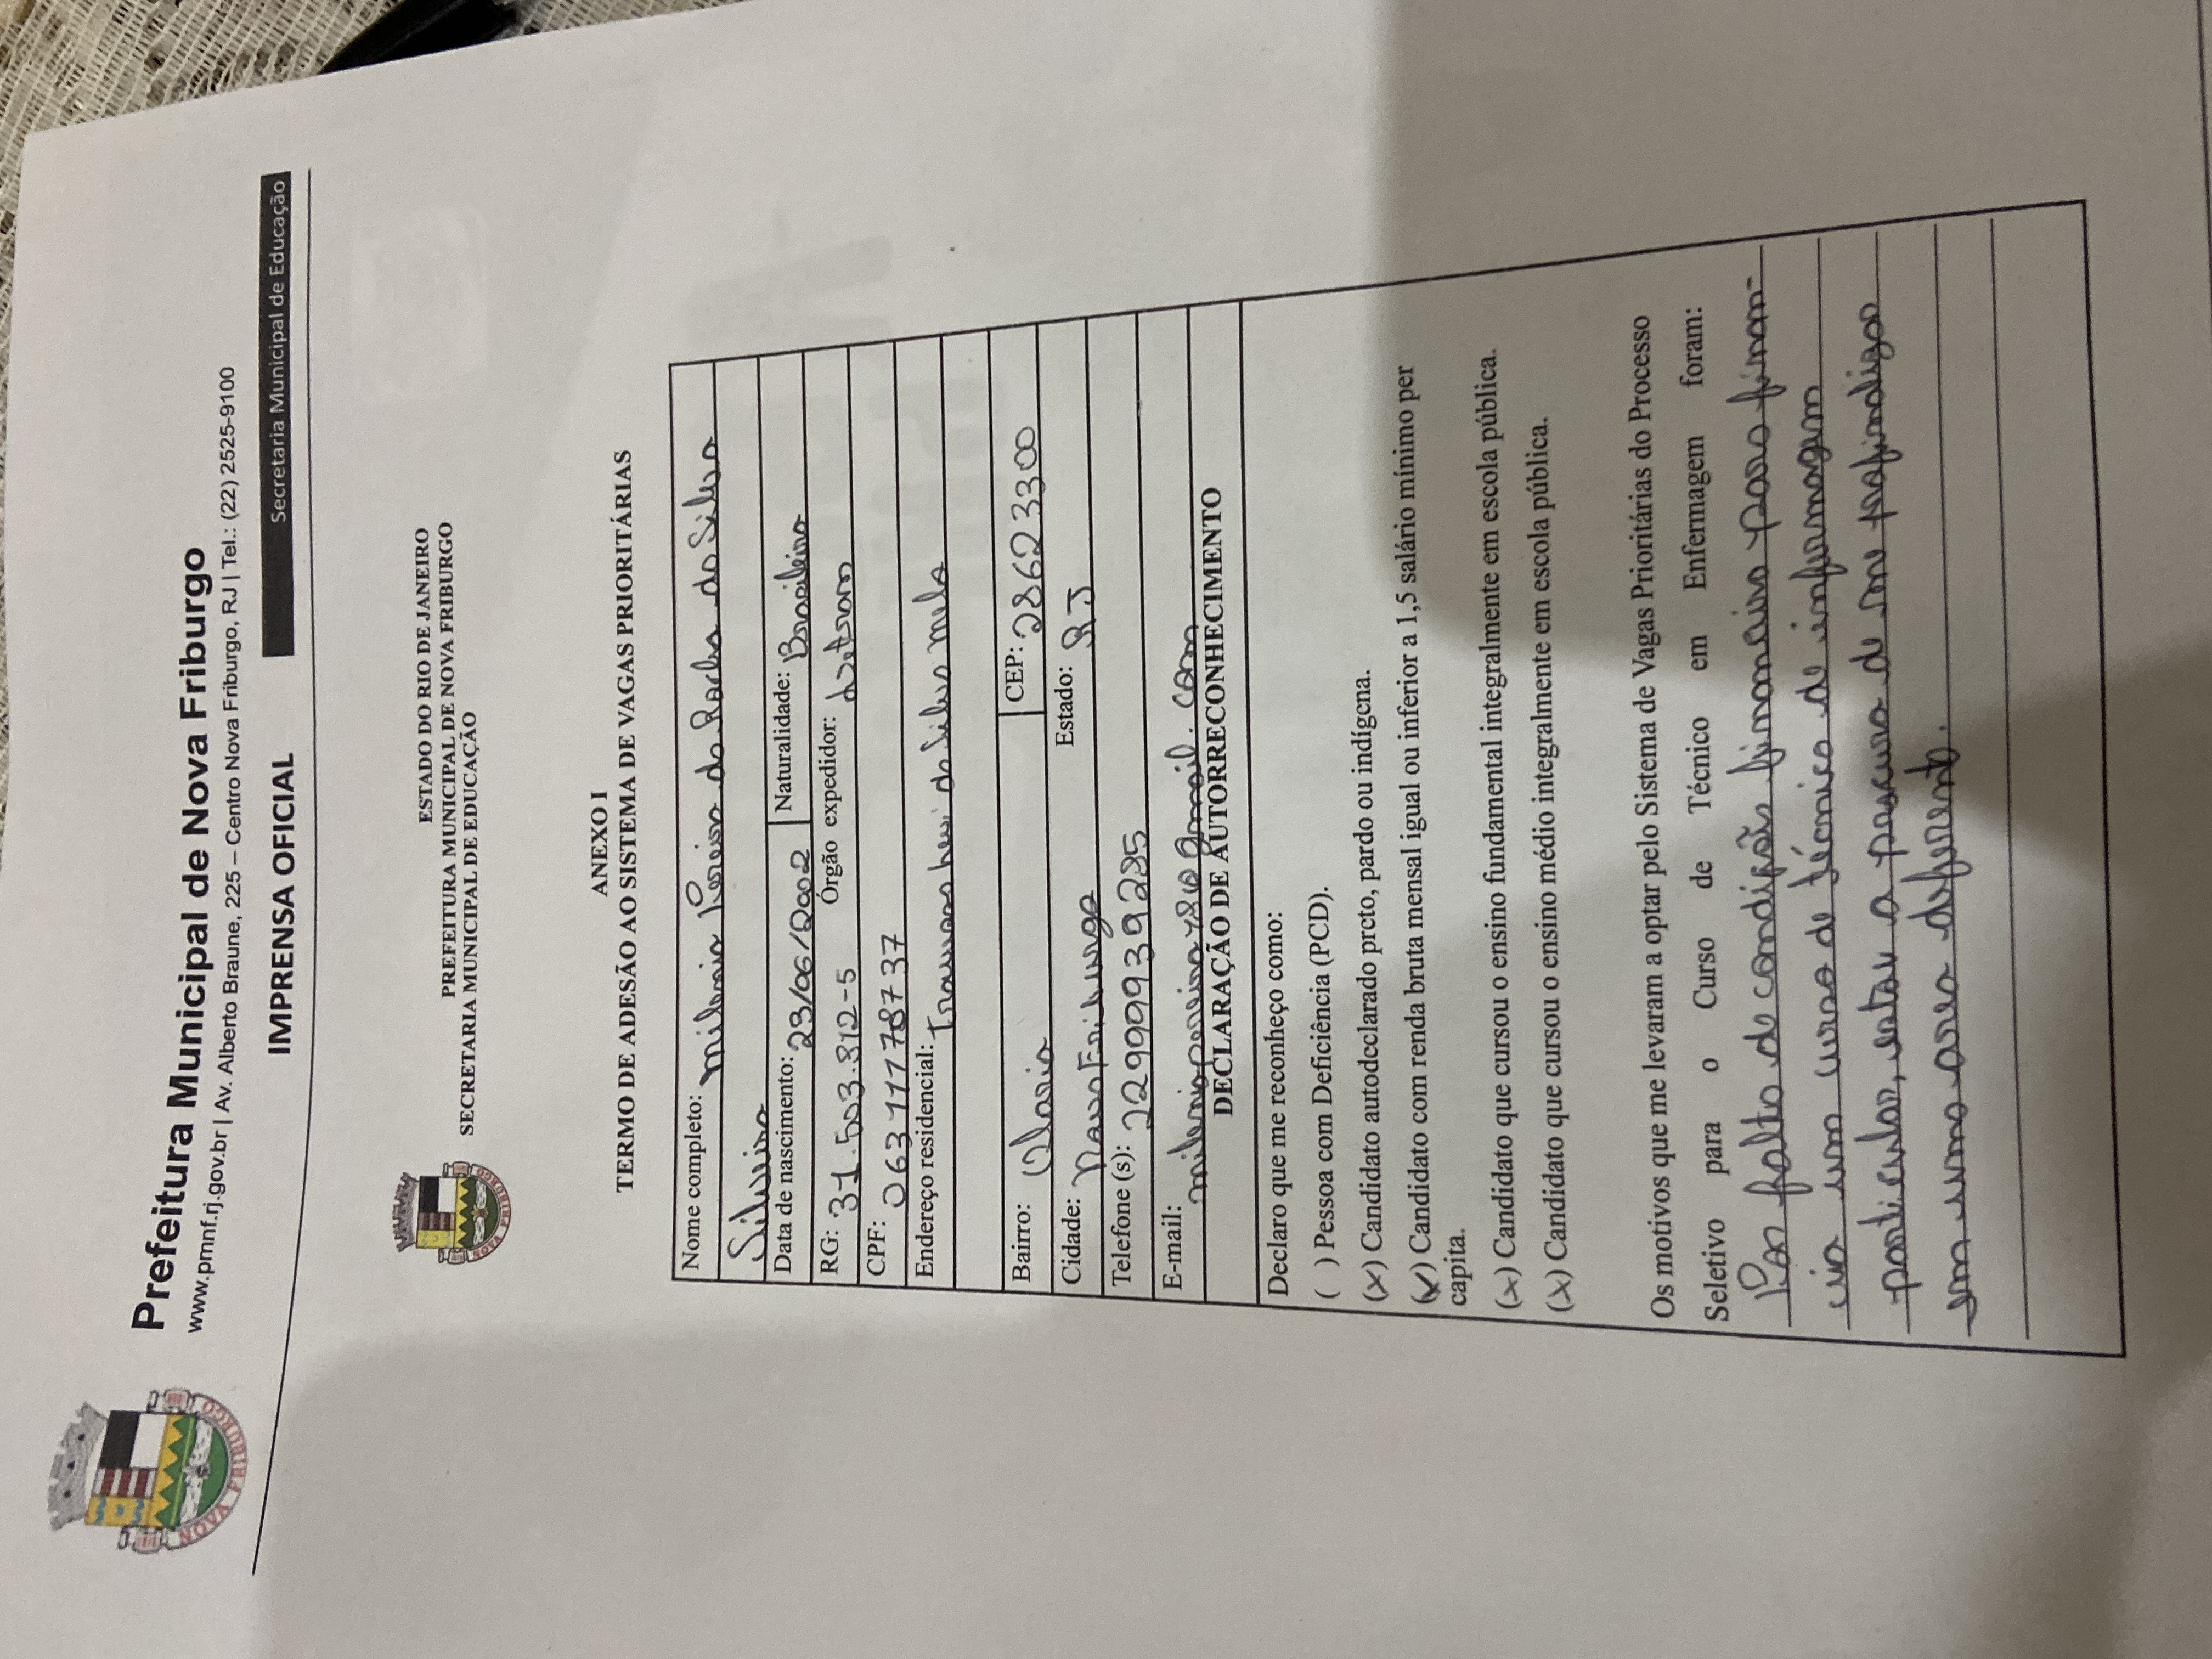 Prefeitura Municipal de Nova Friburgo
www.pmnf.rj.gov.br | Av. Alberto Braune, 225 – Centro Nova Friburgo, RJ | Tel.: (22) 2525-9100
IMPRENSA OFICIAL Secretaria Municipal de Educação
NOVA FRIBURGO
ESTADO DO RIO DE JANEIRO
PREFEITURA MUNICIPAL DE NOVA FRIBURGO
SECRETARIA MUNICIPAL DE EDUCAÇÃO
NOVA FRIBURGO
ANEXO I
TERMO DE ADESÃO AO SISTEMA DE VAGAS PRIORITÁRIAS
Nome completo: Milenia Pereira da Rocha da Silva
Silveira
Data de nascimento: 23/06/2002 Naturalidade: Brasileira
RG: 31.503.812-5 Órgão expedidor: Detran
CPF: 06311178737
Endereço residencial: travessa Levi da Silva Melo
Bairro: Olaria CEP: 28623300
Cidade: Nova Friburgo Estado: RJ
Telefone (s): 22999939285
E-mail: @gmail.com
DECLARAÇÃO DE AUTORRECONHECIMENTO
Declaro que me reconheço como:
( ) Pessoa com Deficiência (PCD).
(x) Candidato autodeclarado preto, pardo ou indígena.
(x) Candidato com renda bruta mensal igual ou inferior a 1,5 salário mínimo per
capita.
(x) Candidato que cursou o ensino fundamental integralmente em escola pública.
(x) Candidato que cursou o ensino médio integralmente em escola pública.
Os motivos que me levaram a optar pelo Sistema de Vagas Prioritárias do Processo
Seletivo para o Curso de Técnico em Enfermagem foram:
Por falta de financeira para finan-
cia um curso de técnico de infermagem
particular, estou a procura de me
em uma area deferente.